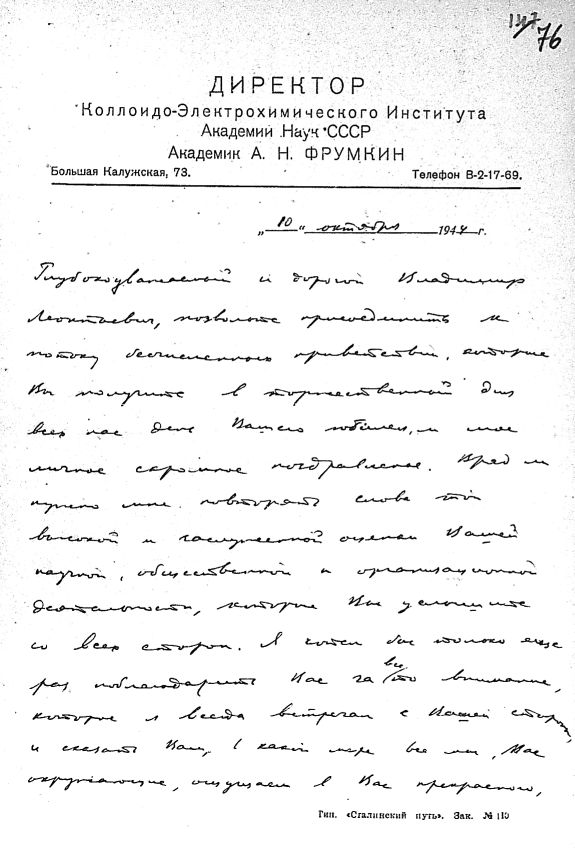 147 76
ДИРЕКТОР
Коллоидо-Электрохимического Института
Академии Наук СССР
Академик А. Н. ФРУМКИН
Большая Калужская, 73. Телефон В-2-17-69.
„10“ октября 1944 г.
Глубокоуважаемый и дорогой Владимир
Леонтьевич, позвольте присоединить к
потоку бесчисленного приветствий, которые
Вы получите в торжественный для
всех нас день Вашего юбилея, и мое
личное скромное поздравление. Вряд ли
нужно мне повторять слова той
высокой и заслуженной оценки Вашей
научной, общественной и организационной
деятельности, которые Вы услышите
со всех сторон. Я хотел бы только еще
раз поблагодарить Вас за все то внимание,
которое я всегда встречал с Вашей стороны,
и сказать Вам, в какой мере все мы, Вас
окружающие, ощущаем в Вас прекрасного,
Тип. «Сталинский путь». Зак. № 110